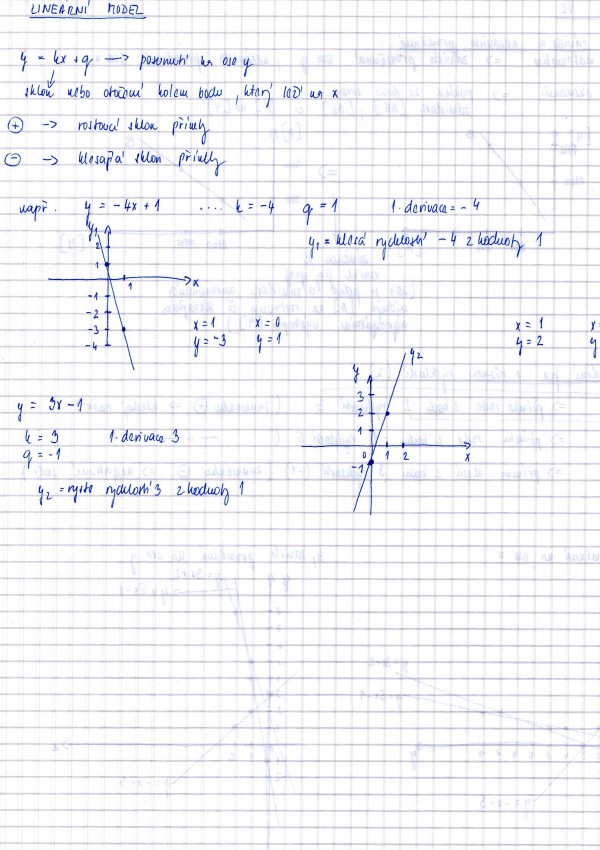 LINEÁRNÍ MODEL
y = kx + q —> posunutí na ose y
sklon nebo otočení kolem bodu, který leží na x
⊕ —> rostoucí sklon přímky
⊖ —> klesající sklon přímky
např. y = -4x + 1 .... k = -4 q = 1 1. derivace = -4
y₁ = klesá rychlostí -4 z hodnoty 1
y₁
2
1
1
x
-1
-2
-3
-4
x = 1 x = 0
y = -3 y = 1
x = 1 x
y = 2 y
y = 3x - 1
k = 3 1. derivace 3
q = -1
y₂ = roste rychlostí 3 z hodnoty 1
y
y₂
3
2
1
0 1 2
x
-1